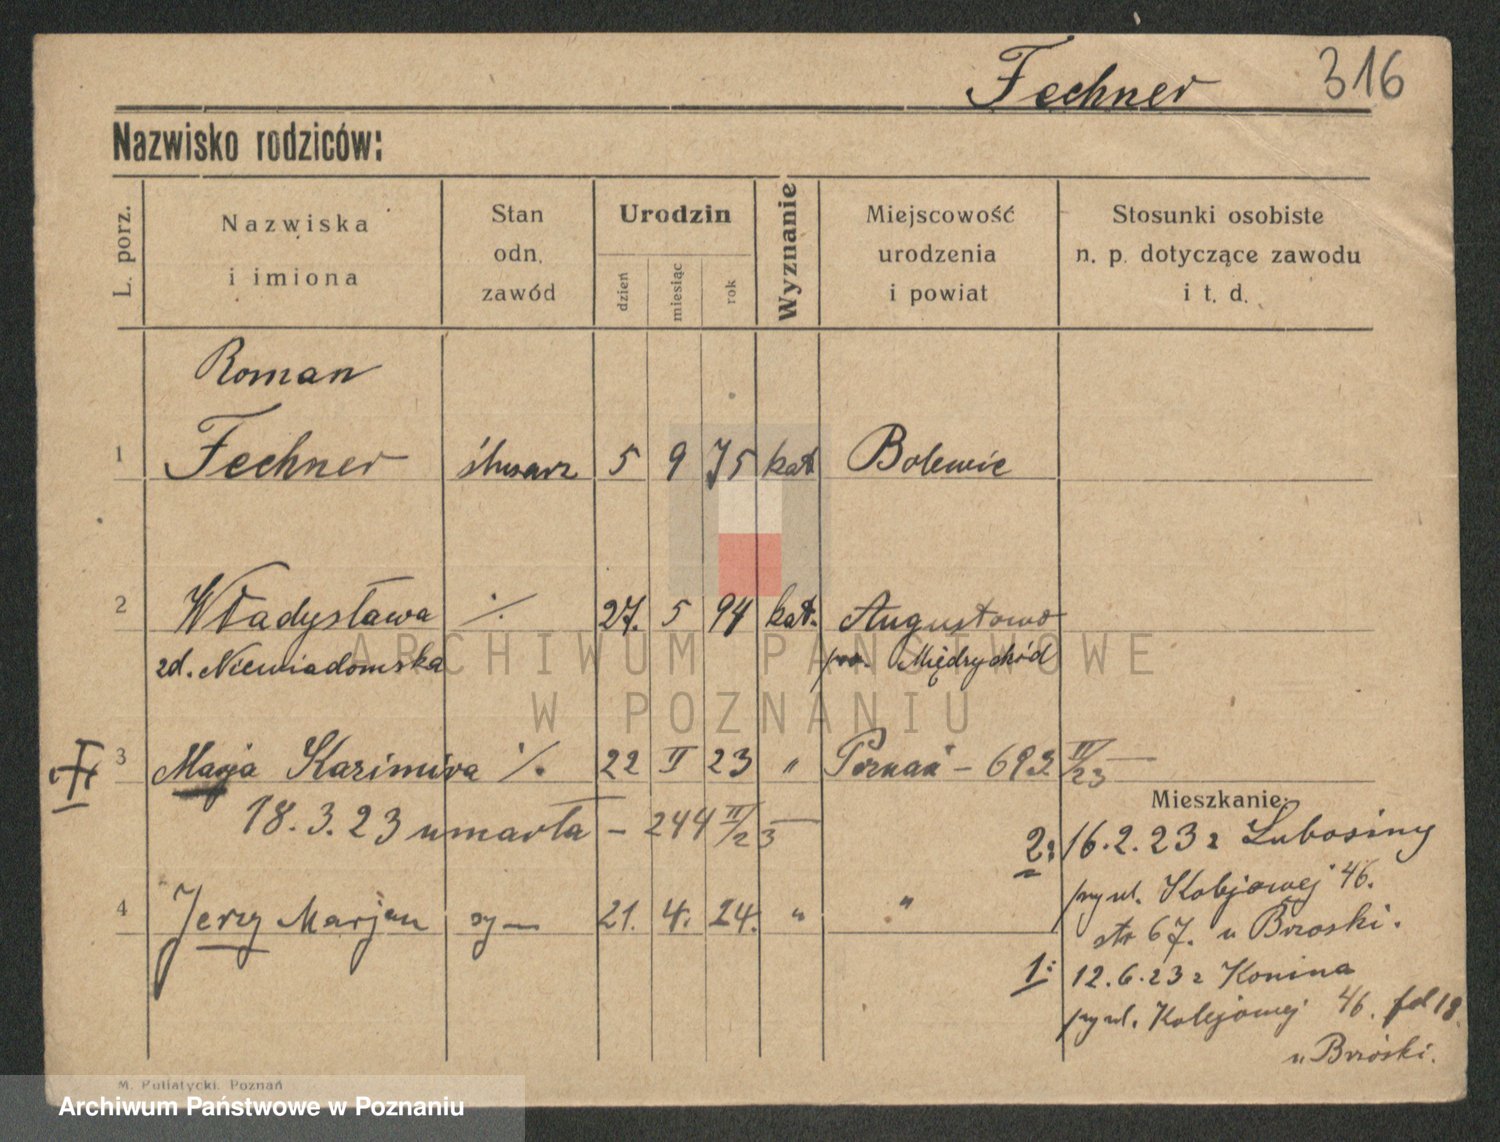 Fechner 316
Nazwisko rodziców:
L. porz.
Nazwiska
i imiona
Stan
odn.
zawód
Urodzin
dzień
miesiąc
rok
Wyznanie
Miejscowość
urodzenia
i powiat
Stosunki osobiste
n. p. dotyczące zawodu
i t. d.
Roman
1 Fechner ślusarz 5 9 75 kat Bolewic
2 Władysława ./. 27. 5 94 kat. Augustowo
zd. Niewiadomska pow. Międrychód
3 Marja Kazimira ./. 22 II 23 " Poznań - 692 II/23
18.3.23 umarła - 244 II/23
Mieszkanie:
2: 16.2.23 z Lubosiny
przy ul. Kolejowej 46.
str 67. u Brzoski.
4 Jerzy Marjan sy— 21. 4. 24. " "
1: 12.6.23 z Konina
przy ul. Kolejowej 46. fol 18.
u Brzóski.
M. Putiatycki, Poznań
ARCHIWUM PAŃSTWOWE
W POZNANIU
Archiwum Państwowe w Poznaniu